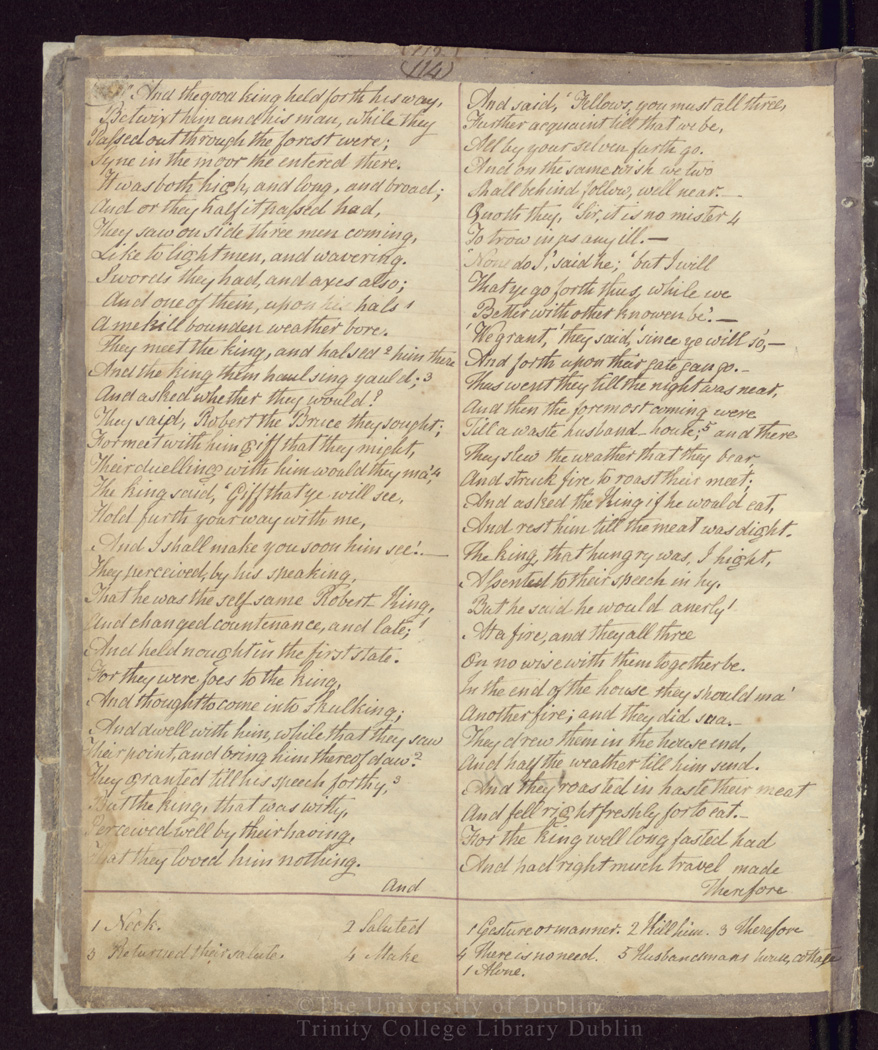 (114)
And the good king held forth his way,
Betwixt him and his man, while they
Passed out through the forest were;
Syne in the moor the entered there.
It was both high, and long, and broad;
And or they half it passed had,
They saw on side three men coming,
Like to light men, and wavering.
Swords they had, and axes also;
And one of them, upon his hals 1
A mekill bounden weather bore.
They meet the king, and halsed 2 him there
And the king them haulsing yauld; 3
And asked whether they would?
They said, Robert the Bruce they sought;
For meet with him giff that they might,
Their duelling with him would they ma', 4
The king said, 'Giff that ye will see,
Hold furth your way with me,
And I shall make you soon him see'.—
They perceived, by his speaking,
That he was the self same Robert King,
And changed countenance, and late; 1
And held nought in the first state.
For they were foes to the king,
And thought to come into skulking;
And dwell with him, while that they saw
Their point, and bring him thereof daw. 2
They granted till his speech forthy, 3
But the king, that was witty,
Perceived well by their having,
That they loved him nothing.
And
1 Neck. 2 Saluted
3 Returned their salute. 4 Make
And said, 'Fellows, you must all three,
Further acquaint till that we be,
All by your selven furth go.
And on the same wish we two
Shall behind follow, well near.—
Quoth they, 'Sir, it is no mister 4
To trow in us any ill.—
'None do I,' said he; 'but I will
That ye go forth thus, while we
Better with other knowen be'.—
'We grant,' they said, 'since ye will so',—
And forth upon their gate gan go.—
Thus went they till the night was near,
And then the foremost coming were
Till a waste husband-house; 5 and there
They slew the weather that they bear,
And struck fire to roast their meet;
And asked the King if he would eat,
And rest him till the meat was dight.
The king, that hungry was, I hight,
Assented to their speech in hy.
But he said he would anerly 1
At a fire, and they all three
On no wise with them together be.
In the end of the house they should ma'
Another fire; and they did swa.—
They drew them in the house end,
And half the weather till him send.
And they roasted in haste their meat
And fell right freshly for to eat.—
For the King well long fasted had
And had right much travel made
Therefore
1 Gesture or manner. 2 Kill him. 3 Therefore
4 There is no need. 5 Husbandmans house, cottage
1 Alone.
© The University of Dublin
Trinity College Library Dublin